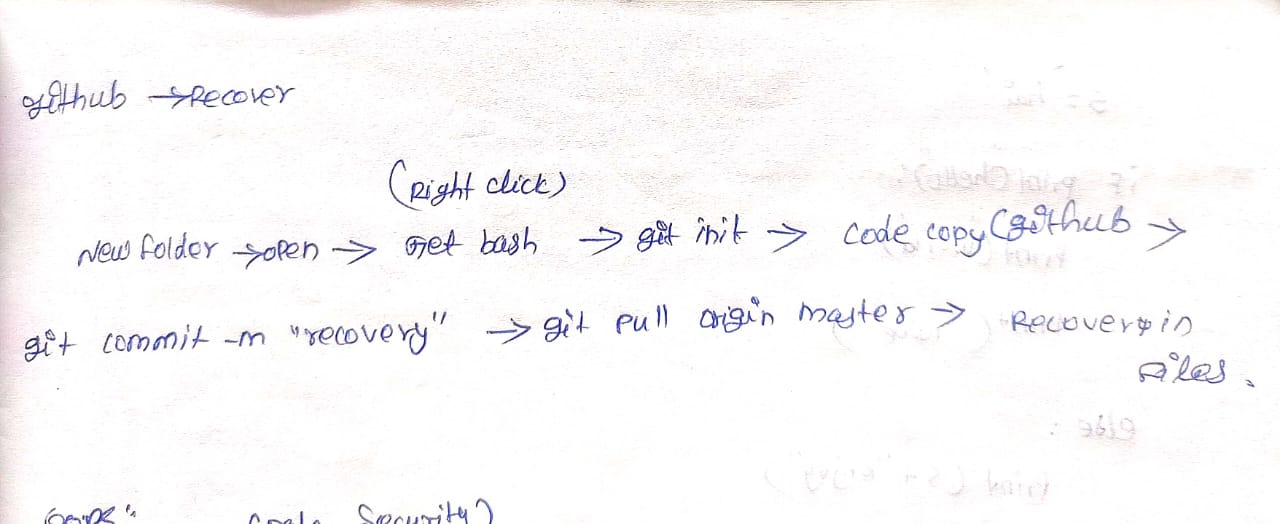 github → Recover
(Right click)
New folder → open → Get bash → git init → code copy (github →
git commit -m "recovery" → git pull origin master → Recover in
files.
Security)